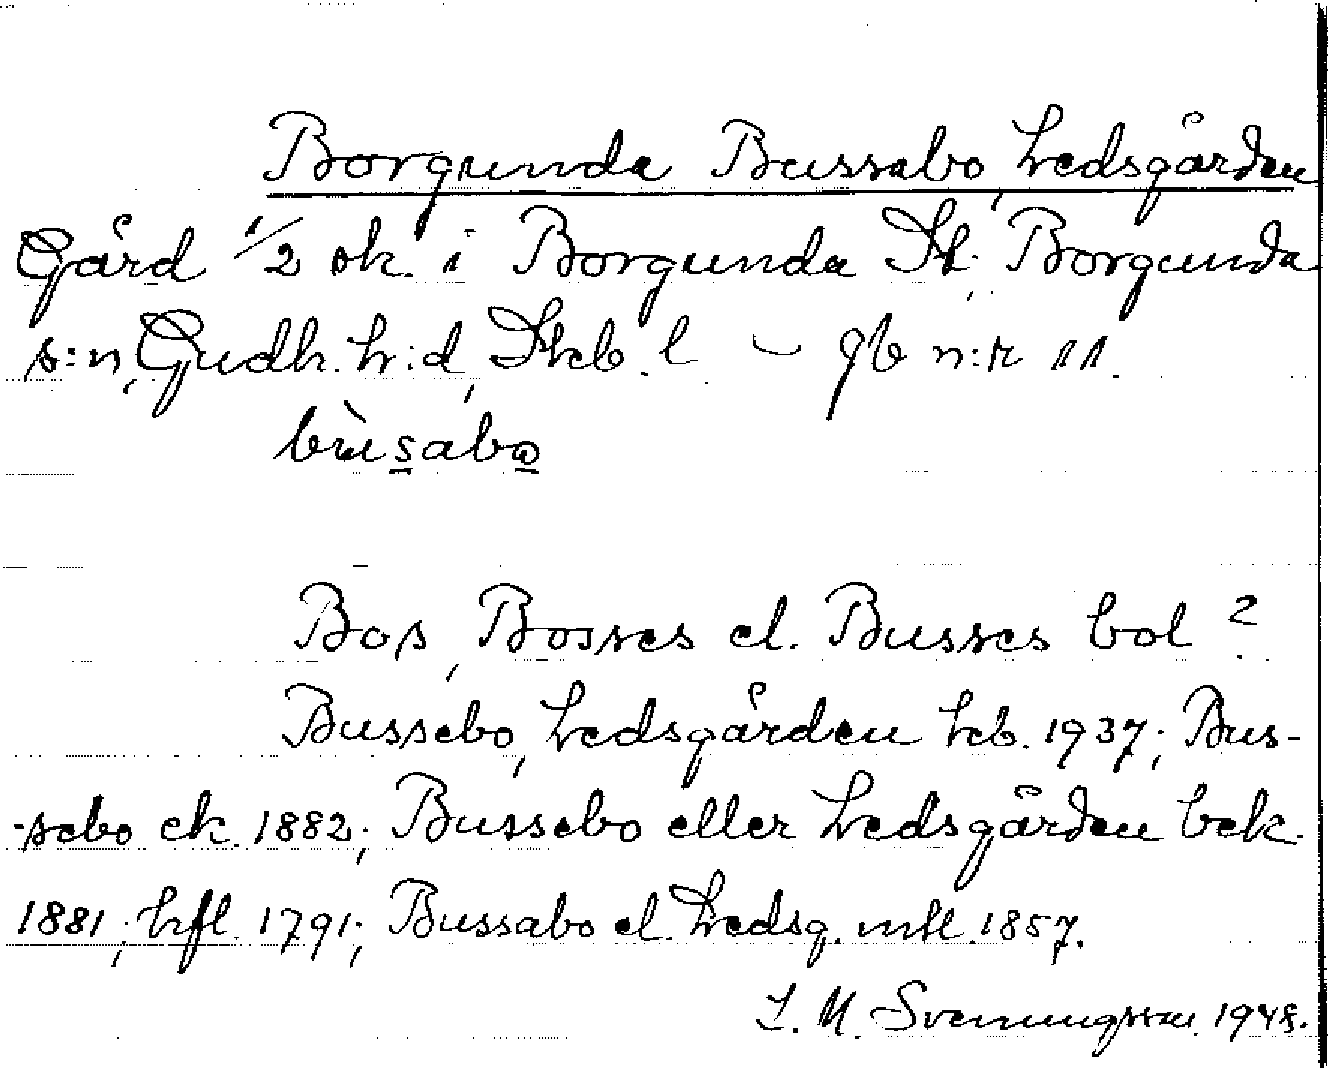 Borgunda Bussabo, Ledsgården
Gård 1/2 ok. i Borgunda St. Borgunda
s:n, Gudh. h:d, Skeb. l. gb n:r 11.
bùsabo
Bos, Bosses el. Busses bol?
Bussebo, Ledsgården kb. 1937; Bus-
-sebo ek. 1882; Bussebo eller Ledsgården bek.
1881; hfl. 1791; Bussabo el. Ledsg. mtl. 1857.
L. M. Svenungsson. 1948.